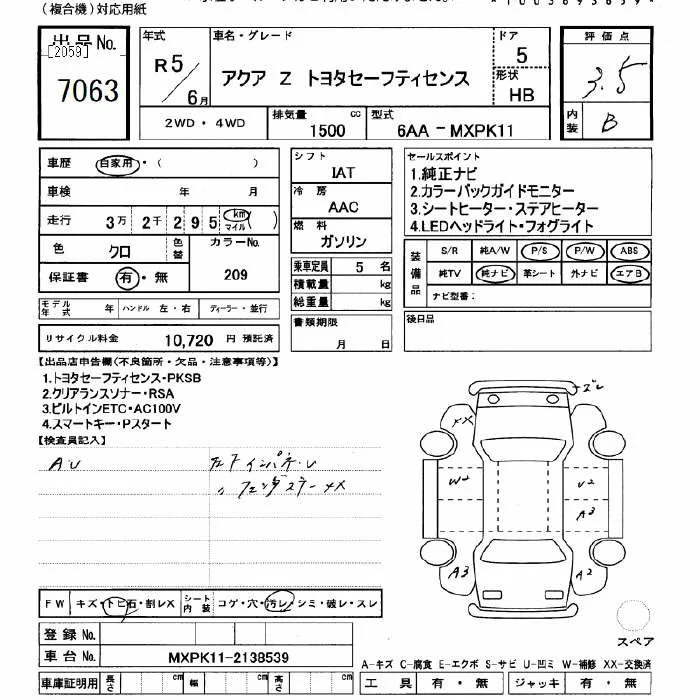 (複合機)対応用紙
出品No.
[2059]
7063
年式
R5/6月
車名・グレード
アクア Z トヨタセーフティセンス
ドア
5
形状
HB
評価点
3.5
内装
B
2WD・4WD
排気量
1500
cc
型式
6AA-MXPK11
車歴
自家用・( )
車検 年 月
走行 3万 2千 2 9 5 (km マイル)
色 クロ
色替
カラーNo.
209
保証書 有・無
シフト
IAT
冷房
AAC
燃料
ガソリン
乗車定員 5 名
積載量 kg
総重量 kg
セールスポイント
1.純正ナビ
2.カラーバックガイドモニター
3.シートヒーター・ステアヒーター
4.LEDヘッドライト・フォグライト
装備品
S/R 純A/W P/S P/W ABS
純TV 純ナビ 革シート 外ナビ エアB
ナビ型番:
モデル年式 年 ハンドル 左・右 ディーラー・並行
リサイクル料金 10,720 円 預託済
書類期限
月 日
後日品
【出品店申告欄(不良箇所・欠品・注意事項等)】
1.トヨタセーフティセンス・PKSB
2.クリアランスソナー・RSA
3.ビルトインETC・AC100V
4.スマートキー・Pスタート
【検査員記入】
AU
XX
W2
U2
A3
A3
A2
FW キズ・トビ石・割レX
シート内装 コゲ・穴・汚レ・シミ・破レ・スレ
登録No.
車台No. MXPK11-2138539
スペア
A-キズ C-腐食 E-エクボ S-サビ U-凹ミ W-補修 XX-交換済
車庫証明用 長さ cm 幅 cm 高さ cm
工具 有・無 ジャッキ 有・無